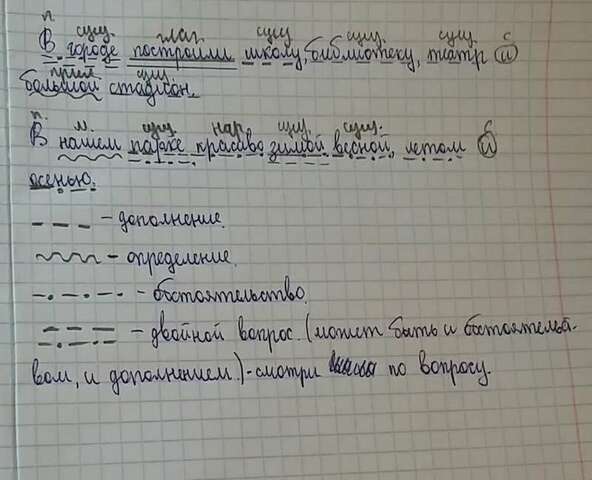 п. сущ. глаг. сущ. сущ. сущ. с.
В городе построили школу, библиотеку, театр и
прил. сущ.
большой стадион.
п. м. сущ. нар. сущ. сущ. с.
В нашем парке красиво зимой весной, летом и
осенью.
– дополнение.
– определение.
– обстоятельство.
– двойной вопрос. (может быть и обстоятельс-
вом, и дополнением.) - смотри по вопросу.